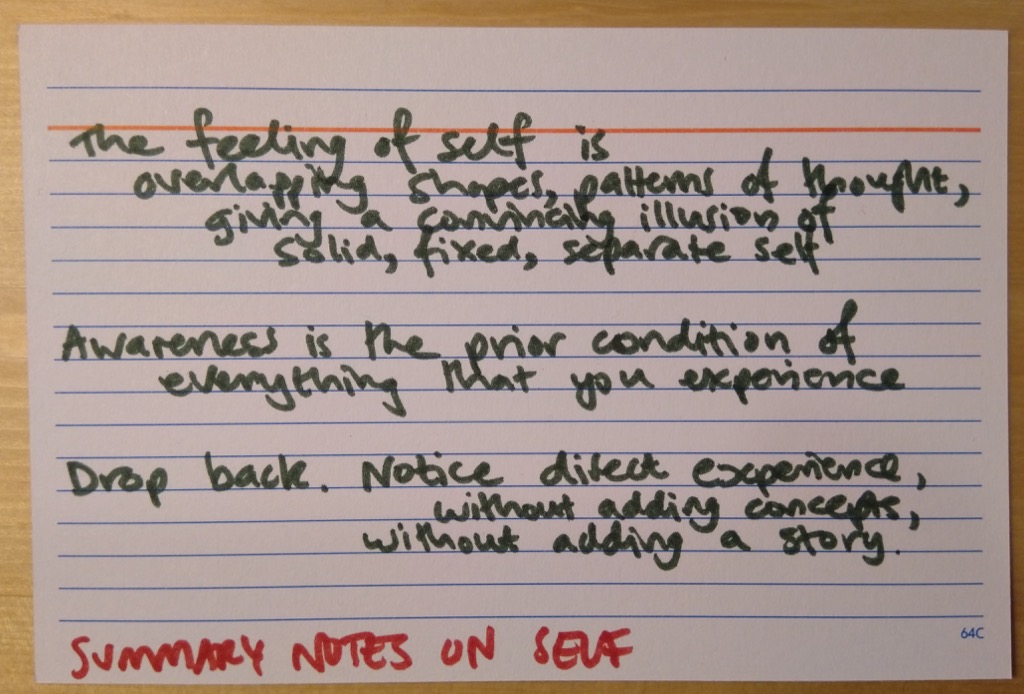 The feeling of self is
overlapping shapes, patterns of thought,
giving a convincing illusion of
solid, fixed, separate self
Awareness is the prior condition of
everything that you experience
Drop back. Notice direct experience,
without adding concepts,
without adding a story.
64C
SUMMARY NOTES ON SELF